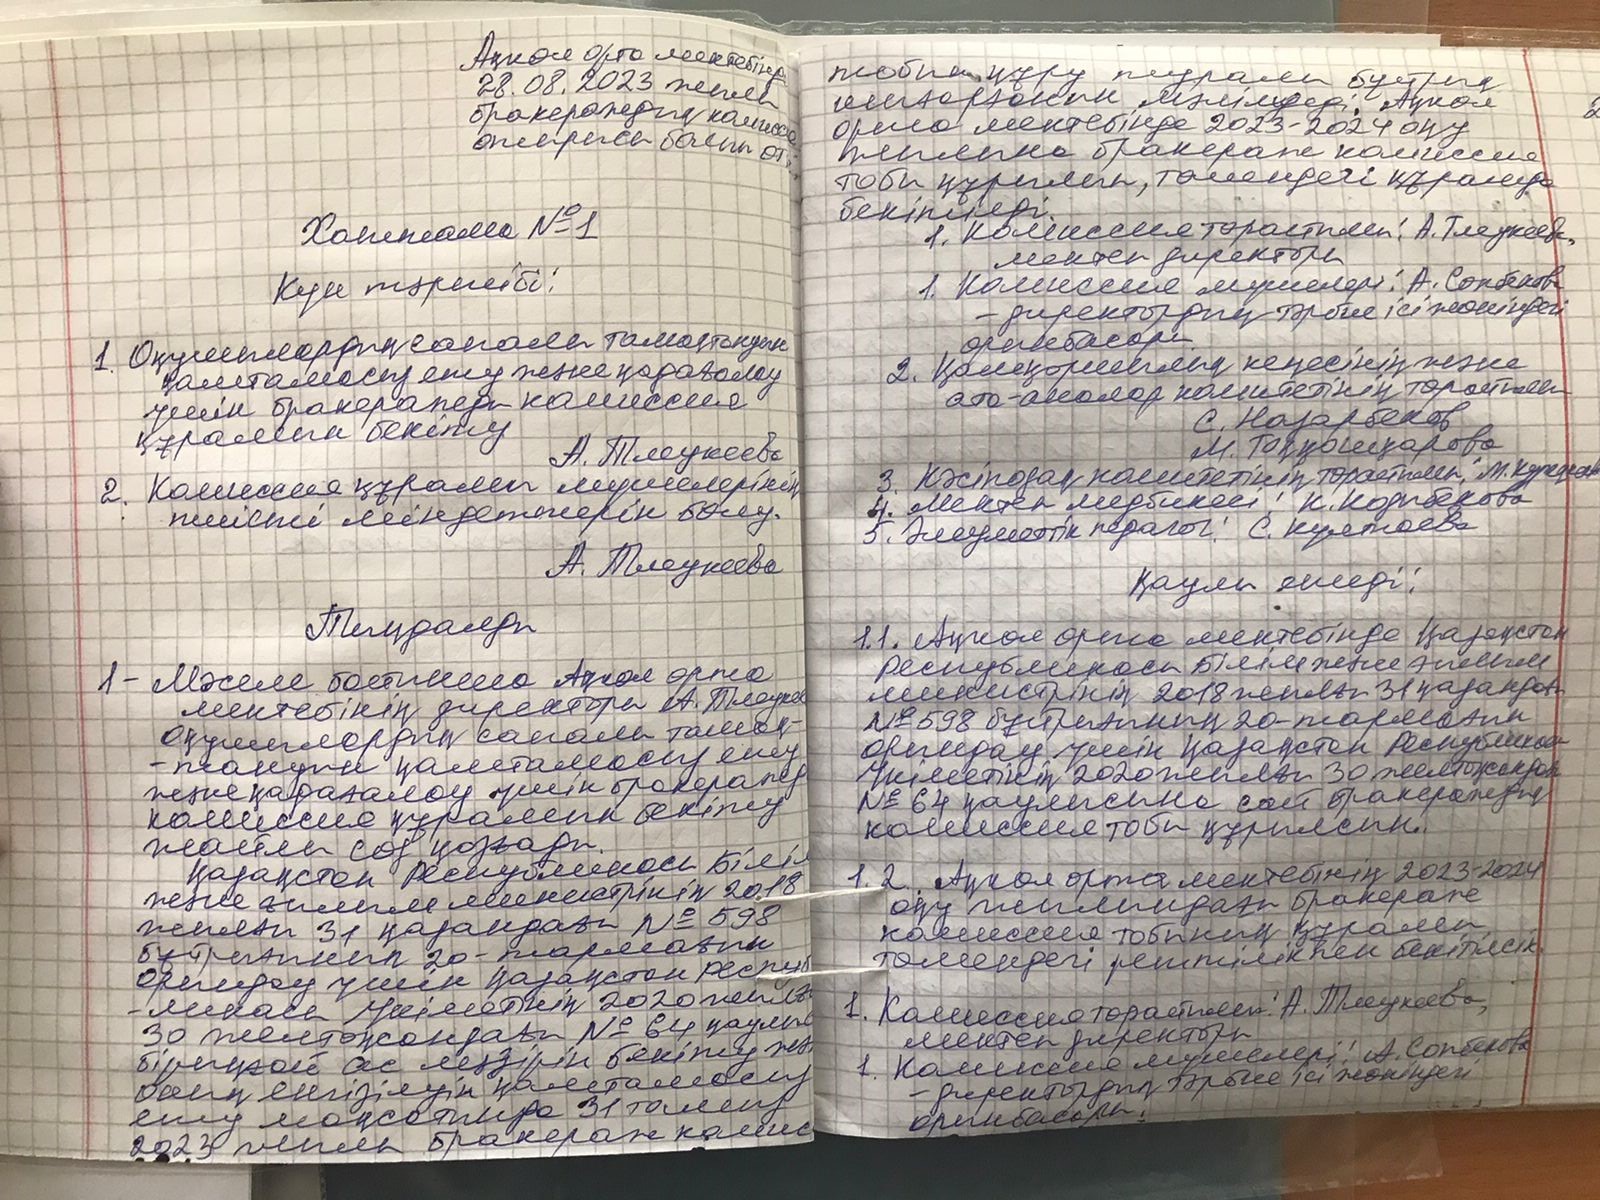 Ақкол орта мектебінде
28.08.2023 жылы
бракераждық комиссия
отырысы болып өт
Хаттама №1
Күн тәртібі:
1. Оқушылардың сапалы тамақтануын
қамтамасыз ету және қадағалау
үшін бракераждық комиссия
құрамын бекіту
А. Тлеукеева
2. Комиссия құрамы мүшелерінің
тиісті міндеттерін бөлу.
А. Тлеукеева
Тыңдалды
1 - Мәселе бойынша Ақкол орта
мектебінің директоры А. Тлеукее
Оқушылардың сапалы тамақ-
-тануын қамтамасыз ету
және қадағалау үшін бракераж
комиссия құрамын бекіту
жайлы сөз қозғады.
Қазақстан Республикасы Білім
және ғылым министрінің 2018
жылғы 31 қазандағы №598
бұйрығының 20-тармағын
орындау үшін Қазақстан Респуб
-ликасы Үкіметінің 2020 жылғы
30 желтоқсандағы №64 қаулы
бірыңғай ас мәзірін бекіту жән
оның енгізілуін қамтамасыз
ету мақсатында 31 тамыз
2023 жылы бракераж комис
тобын құру туралы бұйрық
шығарғанын мәлімдеді. Ақкол
орта мектебінде 2023-2024 оқу
жылына бракераж комиссия
тобы құрылып, төмендегі құрамда
бекітілді.
1. Комиссия төрайымы: А. Тлеукеева,
мектеп директоры
1. Комиссия мүшелері: А. Сопбекова
- директордың тәрбие ісі жөніндегі
орынбасары
2. Қамқоршылық кеңесінің және
ата-аналар комитетінің төрайымы
С. Назарбеков
М. Тоққошқарова
3. Кәсіподақ комитетінің төрайымы: М.
4. Мектеп медбикесі: К. Кодибекова
5. Әлеуметтік педагог: С. Култаева
Қаулы етеді:
1.1. Ақкол орта мектебінде Қазақстан
Республикасы Білім және ғылым
министрінің 2018 жылғы 31 қазандағы
№598 бұйрығының 20-тармағын
орындау үшін Қазақстан Республикасы
Үкіметінің 2020 жылғы 30 желтоқсандағы
№64 қаулысына сай бракераждық
комиссия тобы құрылсын.
1.2. Ақкол орта мектебінің 2023-2024
оқу жылындағы бракераж
комиссия тобының құрамы
төмендегі ретпілікпен бекітілсін.
1. Комиссия төрайымы: А. Тлеукеева,
мектеп директоры
1. Комиссия мүшелері: А. Сопбекова
- директордың тәрбие ісі жөніндегі
орынбасары: